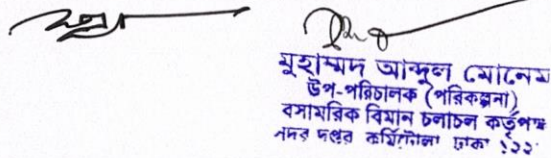 মুহাম্মদ আব্দুল মোনেম
উপ-পরিচালক (পরিকল্পনা)
বসামরিক বিমান চলাচল কর্তৃপক্ষ
দপ্তর কুর্মিটোলা ঢাকা